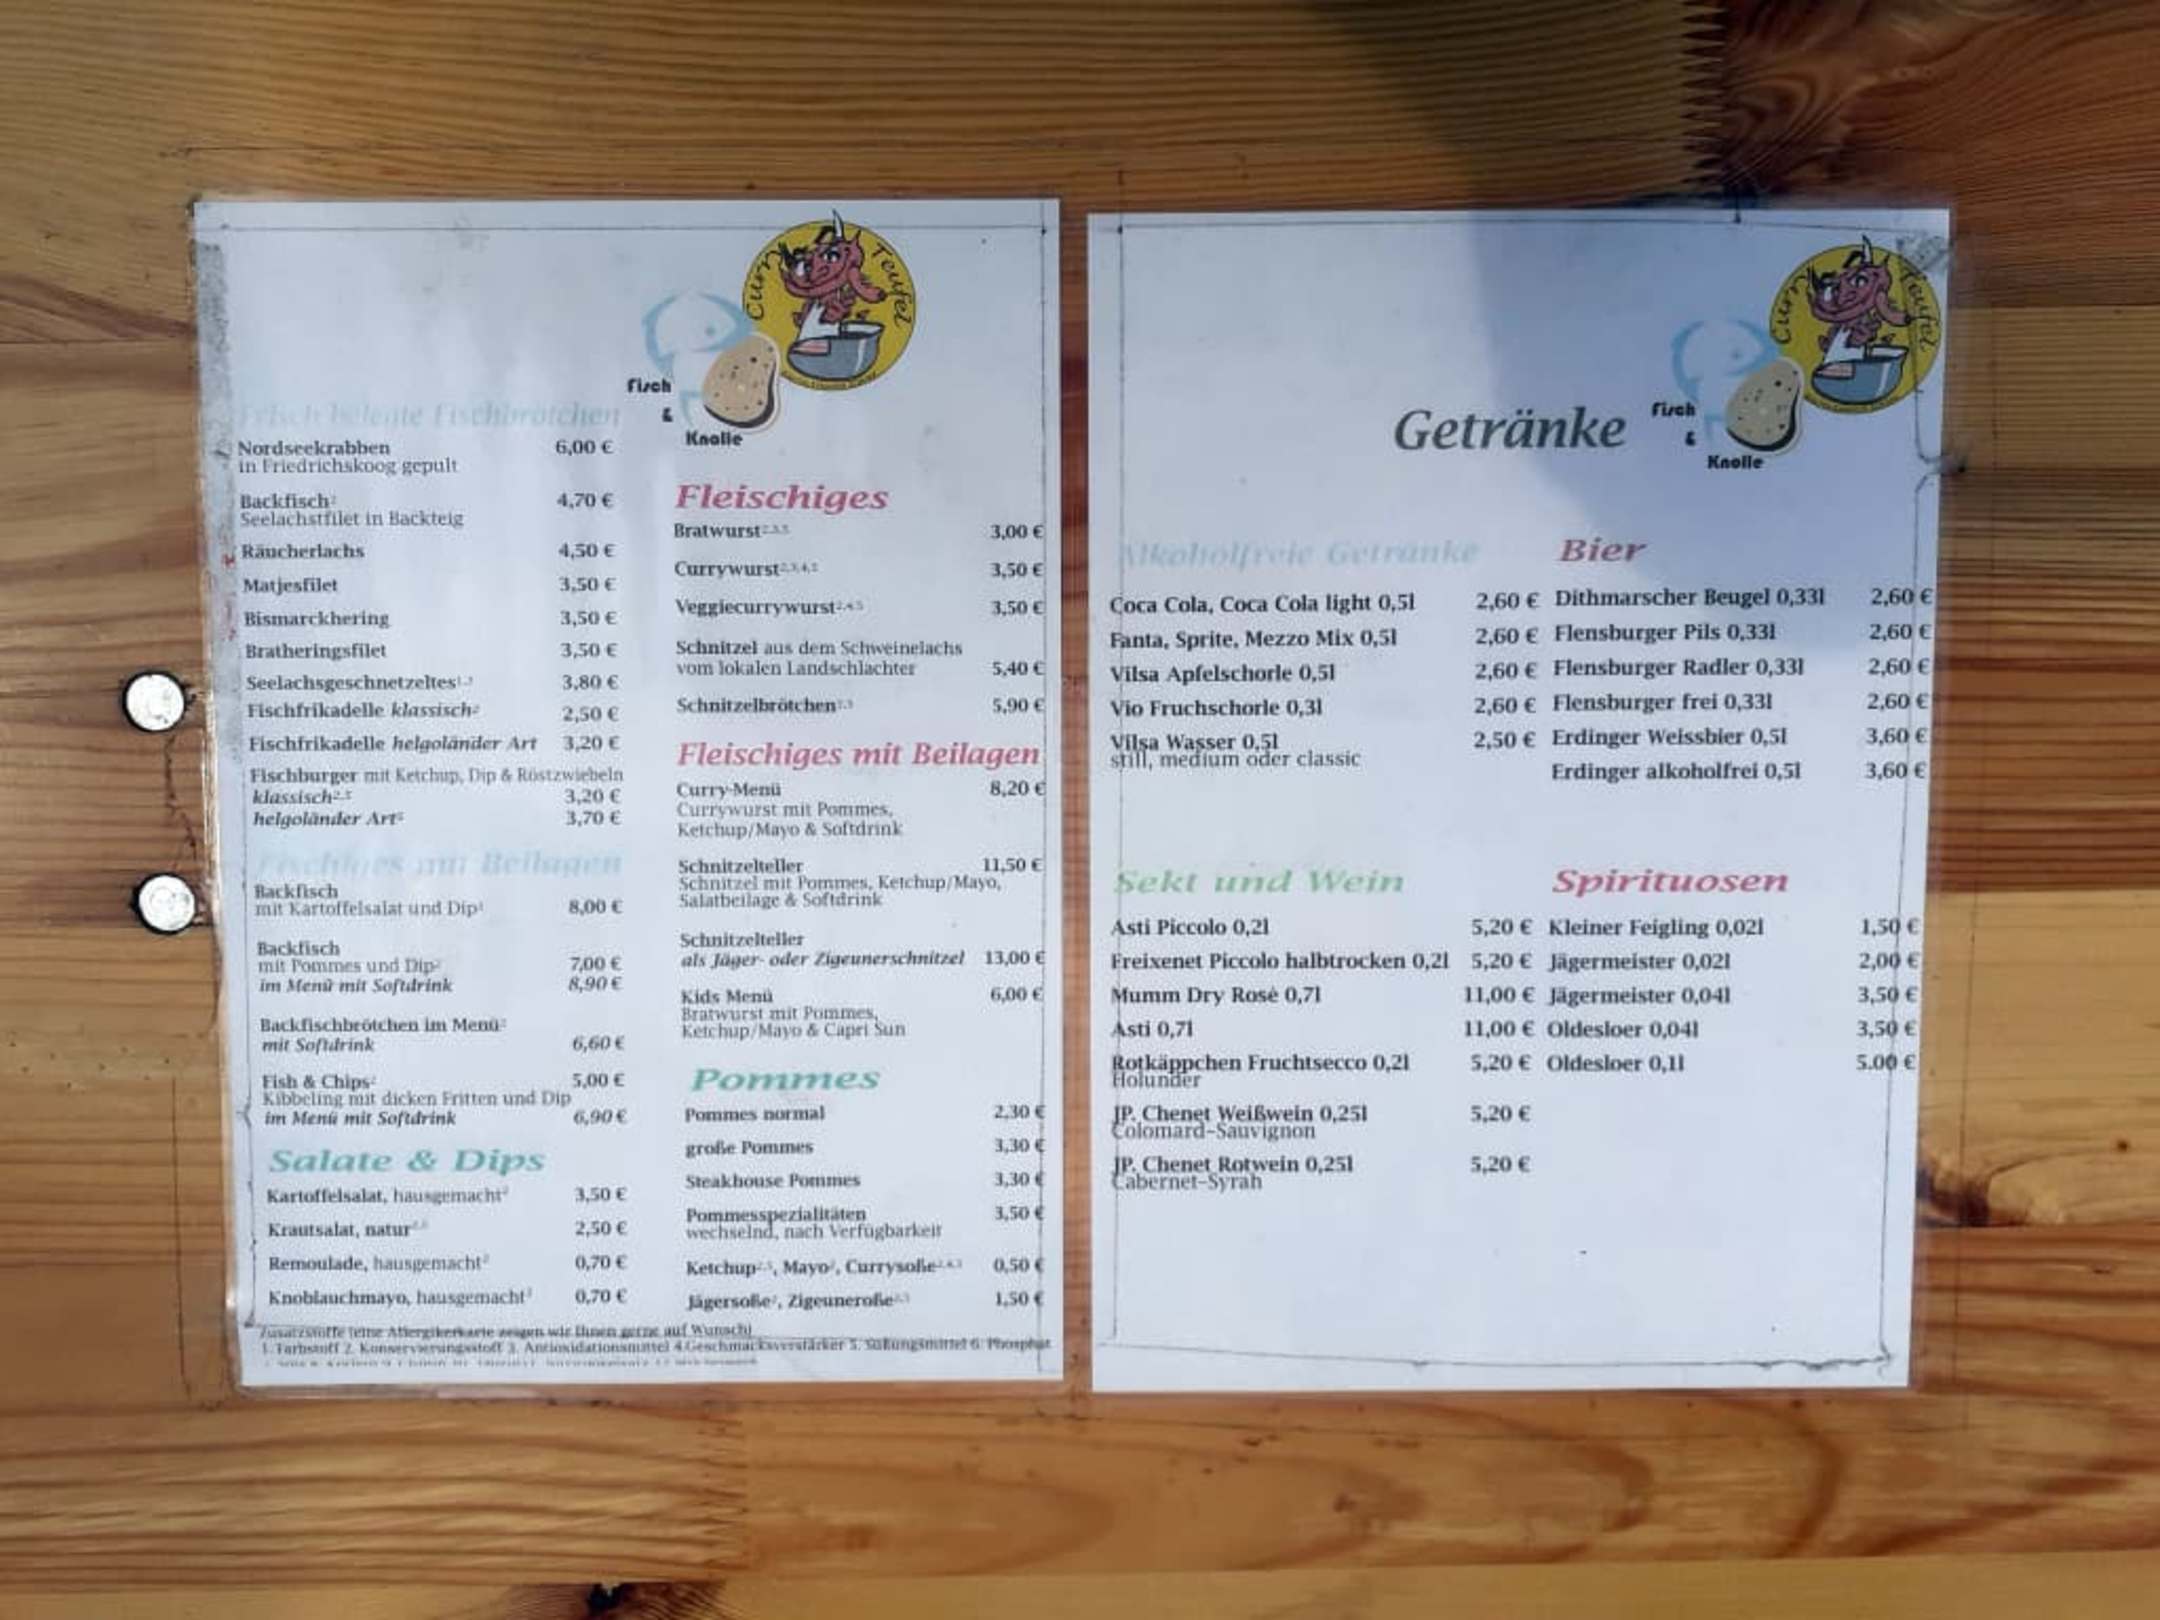 Curry Teufel
Fisch
&
Knolle
Frisch belegte Fischbrötchen
Nordseekrabben 6,00 €
in Friedrichskoog gepult
Backfisch² 4,70 €
Seelachstfilet in Backteig
Räucherlachs 4,50 €
Matjesfilet 3,50 €
Bismarckhering 3,50 €
Bratheringsfilet 3,50 €
Seelachsgeschnetzeltes 3,80 €
Fischfrikadelle klassisch² 2,50 €
Fischfrikadelle helgoländer Art 3,20 €
Fischburger mit Ketchup, Dip & Röstzwiebeln
klassisch 3,20 €
helgoländer Art 3,70 €
Fischiges mit Beilagen
Backfisch
mit Kartoffelsalat und Dip 8,00 €
Backfisch
mit Pommes und Dip² 7,00 €
im Menü mit Softdrink 8,90 €
Backfischbrötchen im Menü²
mit Softdrink 6,60 €
Fish & Chips² 5,00 €
Kibbeling mit dicken Fritten und Dip
im Menü mit Softdrink 6,90 €
Salate & Dips
Kartoffelsalat, hausgemacht² 3,50 €
Krautsalat, natur 2,50 €
Remoulade, hausgemacht² 0,70 €
Knoblauchmayo, hausgemacht 0,70 €
Fleischiges
Bratwurst 3,00 €
Currywurst 3,50 €
Veggiecurrywurst 3,50 €
Schnitzel aus dem Schweinelachs
vom lokalen Landschlachter 5,40 €
Schnitzelbrötchen 5,90 €
Fleischiges mit Beilagen
Curry-Menü 8,20 €
Currywurst mit Pommes,
Ketchup/Mayo & Softdrink
Schnitzelteller 11,50 €
Schnitzel mit Pommes, Ketchup/Mayo,
Salatbeilage & Softdrink
Schnitzelteller
als Jäger- oder Zigeunerschnitzel 13,00 €
Kids Menü 6,00 €
Bratwurst mit Pommes,
Ketchup/Mayo & Capri Sun
Pommes
Pommes normal 2,30 €
große Pommes 3,30 €
Steakhouse Pommes 3,30 €
Pommesspezialitäten 3,50 €
wechselnd, nach Verfügbarkeit
Ketchup, Mayo, Currysoße 0,50 €
Jägersoße, Zigeuneroße 1,50 €
Zusatzstoffe (eine Allergikerkarte zeigen wir Ihnen gerne auf Wunsch)
1. Farbstoff 2. Konservierungsstoff 3. Antioxidationsmittel 4.Geschmacksverstärker 5. Süßungsmittel 6. Phosphat
Curry Teufel
Fisch
&
Knolle
Getränke
Alkoholfreie Getränke
Coca Cola, Coca Cola light 0,5l 2,60 €
Fanta, Sprite, Mezzo Mix 0,5l 2,60 €
Vilsa Apfelschorle 0,5l 2,60 €
Vio Fruchschorle 0,3l 2,60 €
Vilsa Wasser 0,5l 2,50 €
still, medium oder classic
Bier
Dithmarscher Beugel 0,33l 2,60 €
Flensburger Pils 0,33l 2,60 €
Flensburger Radler 0,33l 2,60 €
Flensburger frei 0,33l 2,60 €
Erdinger Weissbier 0,5l 3,60 €
Erdinger alkoholfrei 0,5l 3,60 €
Sekt und Wein
Asti Piccolo 0,2l 5,20 €
Freixenet Piccolo halbtrocken 0,2l 5,20 €
Mumm Dry Rosé 0,7l 11,00 €
Asti 0,7l 11,00 €
Rotkäppchen Fruchtsecco 0,2l 5,20 €
Holunder
JP. Chenet Weißwein 0,25l 5,20 €
Colomard-Sauvignon
JP. Chenet Rotwein 0,25l 5,20 €
Cabernet-Syrah
Spirituosen
Kleiner Feigling 0,02l 1,50 €
Jägermeister 0,02l 2,00 €
Jägermeister 0,04l 3,50 €
Oldesloer 0,04l 3,50 €
Oldesloer 0,1l 5.00 €